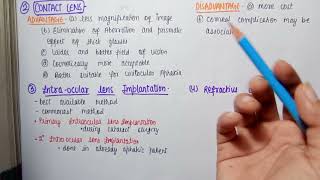 ② CONTACT LENS
ADVANTAGE - ⓐ Less magnification of image
ⓑ Elimination of Aberration and prismatic
effect of thick glasses
ⓒ Wider and better field of vision
ⓓ Cosmetically more acceptable
ⓔ Better suitable for uniocular aphakia
DISADVANTAGE - ⓐ more cost
ⓑ corneal complication may be
associated
③ Intra-ocular Lens Implantation.
- best available method
- commonest method
- Primary Intraocular Lens Implantation
- during cataract surgery
- 2° Intraocular Lens Implantation
- done in already aphakic patient
(4) Refractive